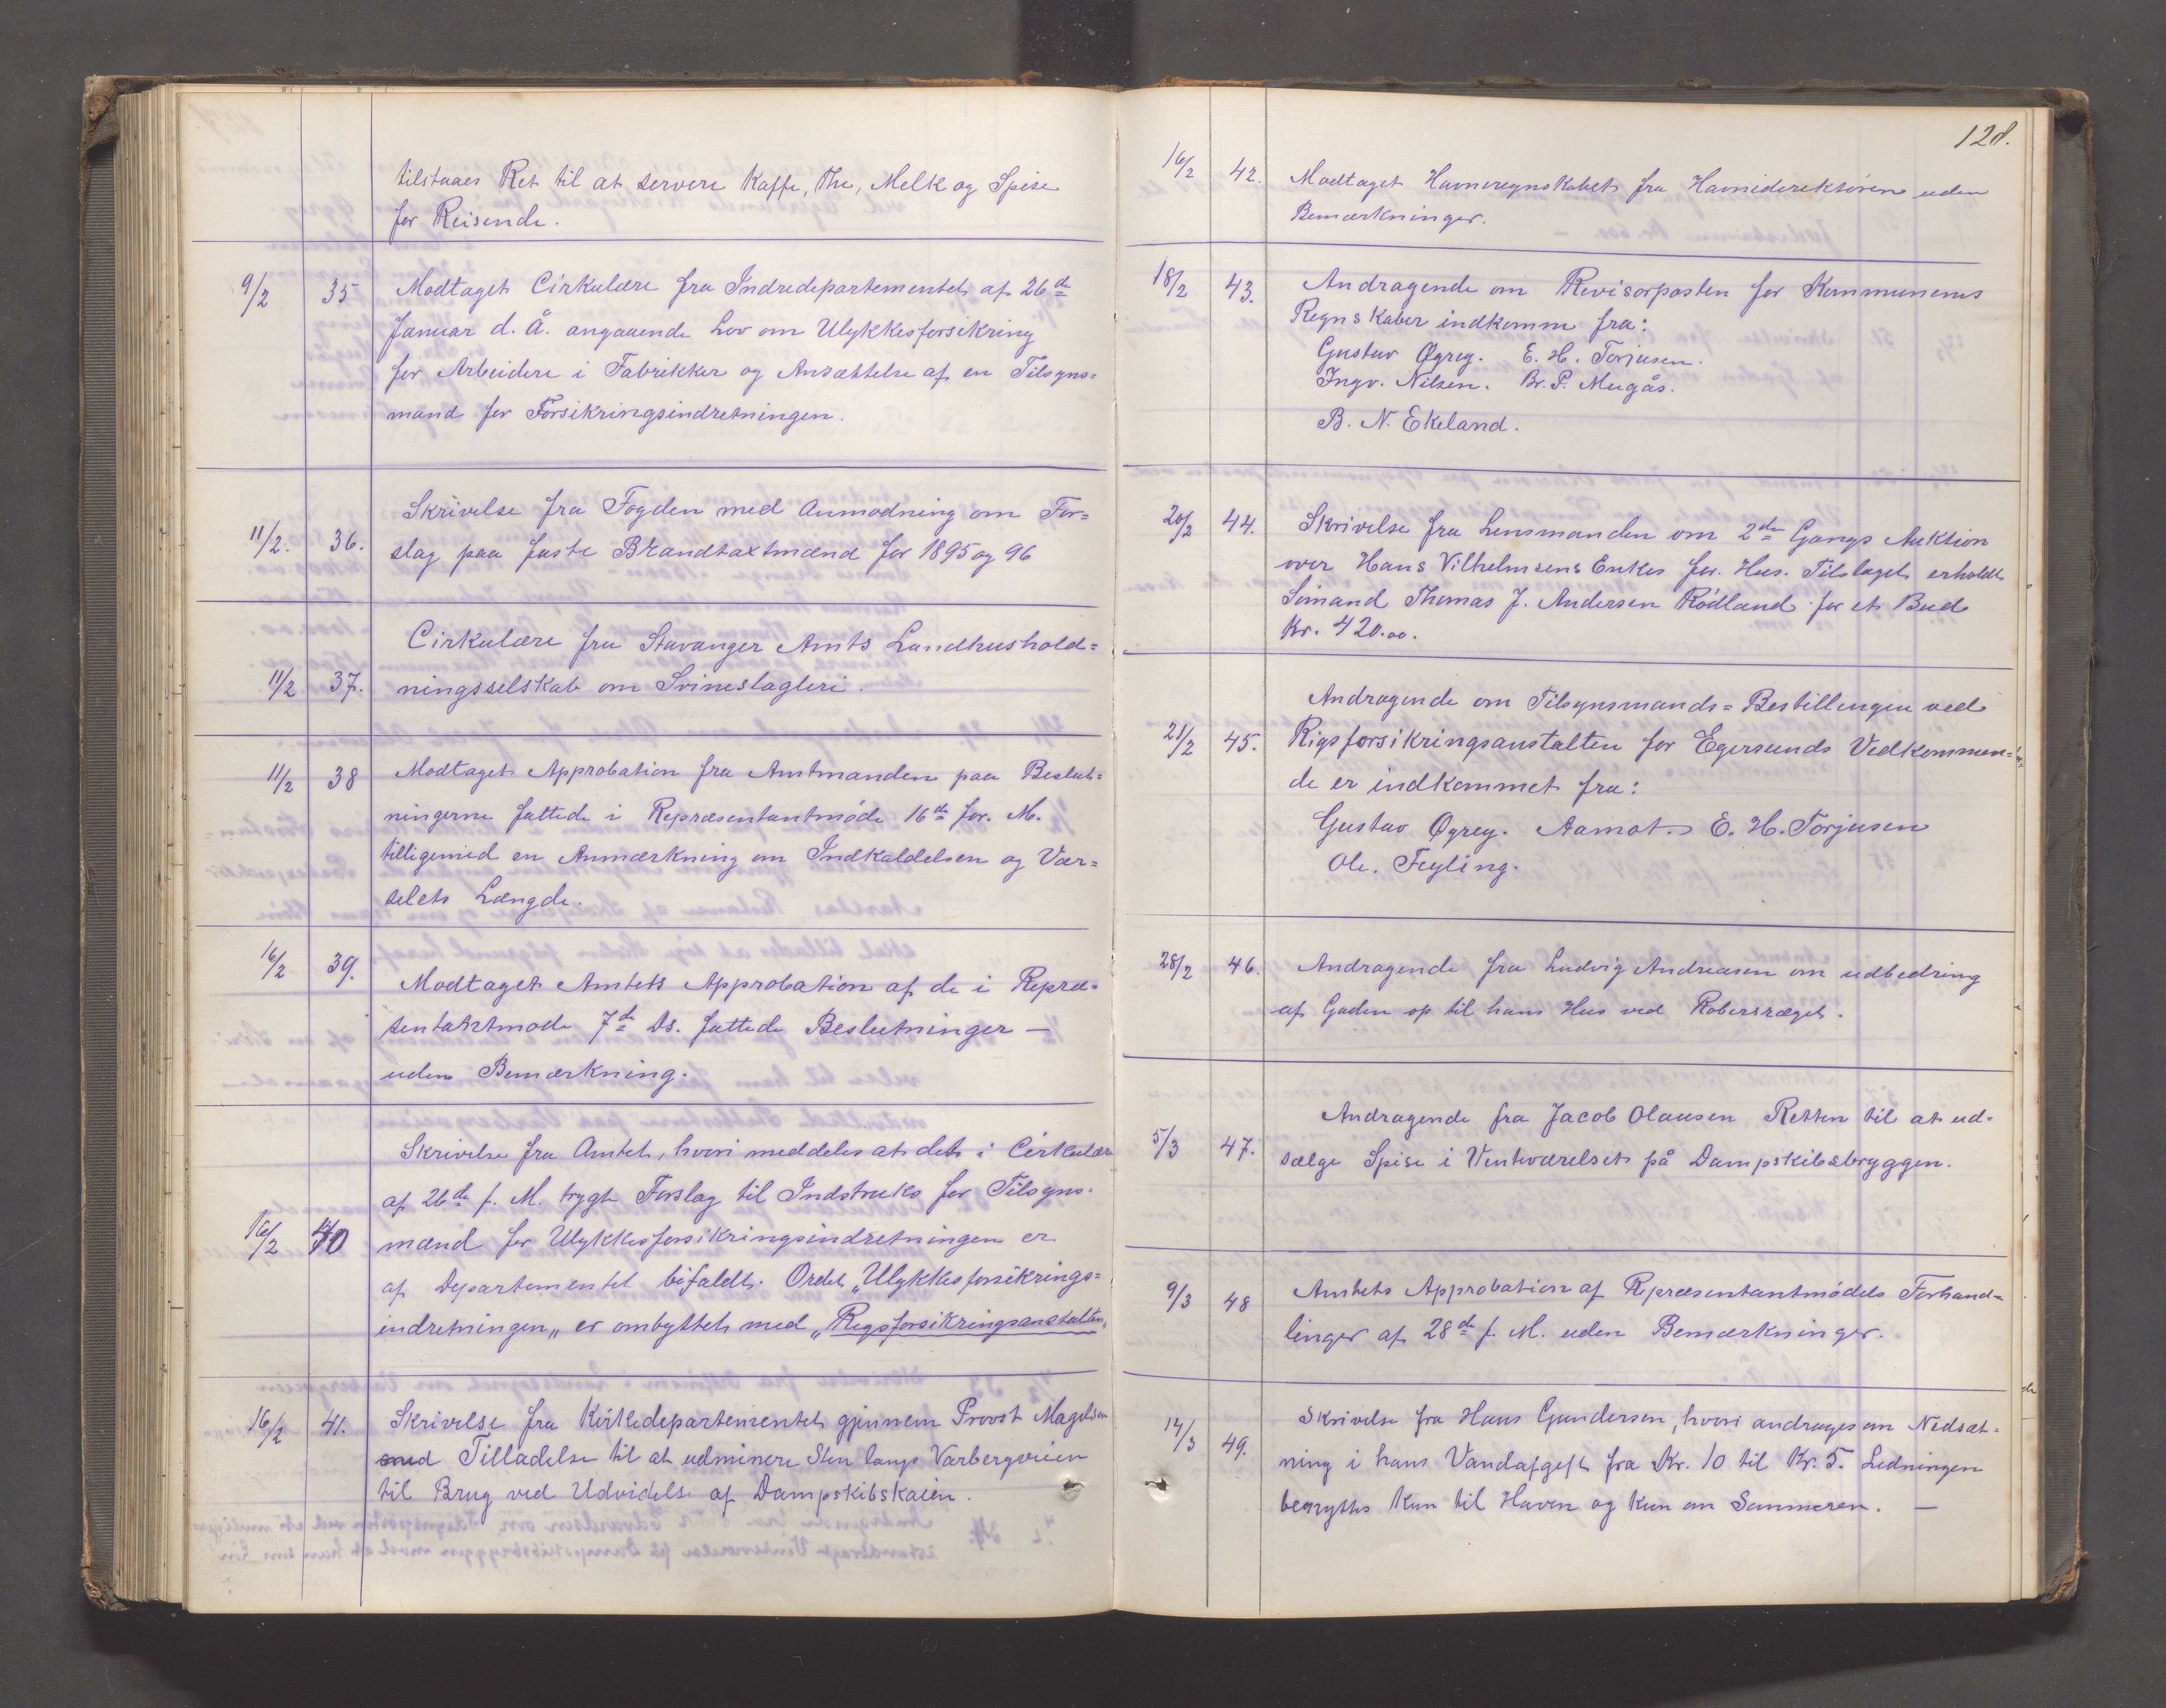 tilstaaes Ret til at servere Kaffe, The, Melk og Spise
for Reisende.
9/2 35 Modtaget Cirkulære fra Indredepartementet af 26de
Januar d. Å. angaaende Lov om Ulykkesforsikring
for Arbeidere i Fabrikker og Ansættelse af en Tilsyns=
mand for Forsikringsindretningen.
Skrivelse fra Fogden med Anmodning om For=
11/2. 36. slag paa faste Brandtaxtmænd for 1895 og 96
Cirkulære fra Stavanger Amts Landhushold=
11/2 37. ningsselskab om Svineslagteri.
11/2 38 Modtaget Approbation fra Amtmanden paa Beslut=
ningerne fattede i Repræsentantmøde 16de for. M.
tilligemed en Anmærkning om Indkaldelsen og Var=
selets Længde.
16/2 39. Modtaget Amtets Approbation af de i Repræ=
sentantmøde 7de ds. fattede Beslutninger —
uden Bemærkning.
Skrivelse fra Amtet, hvori meddeles at det i Cirkulære
af 26de f. M. trygte Forslag til Indstruks for Tilsyns=
16/2 40 mænd for Ulykkesforsikringsindretningen er
af Departementet bifaldt. Ordet „Ulykkesforsikrings=
indretningen„ er ombyttet med „Rigsforsikringsanstalten„
16/2 41. Skrivelse fra Kirkedepartementet gjennem Provst Magelsen
med Tilladelse til at udminere Sten langs Varbergveien
til Brug ved Udvidelse af Dampskibskaien.
128.
16/2 42. Modtaget Havneregnskabet fra Havnedirektøren uden
Bemærkninger.
18/2 43. Andragende om Revisorposten for Kommunens
Regnskaber indkomm fra:
Gustav Øgrey. E. H. Torjusen.
Ingv. Nilsen. Br. P. Mugås.
B. N. Ekeland.
20/2 44. Skrivelse fra Lensmanden om 2den Gangs Auktion
over Hans Vilhelmsens Enkes for. Hus. Tilslaget erholdt
Sømand Thomas J. Andersen Rødland for et Bud
Kr. 420.00.
Andragende om Tilsynsmands=Bestillingen ved
21/2 45. Rigsforsikringsanstalten for Egersunds Vedkommen=
de er indkommet fra:
Gustav Øgrey. Aamot. E. H. Torjusen
Ole. Feyling.
28/2 46. Andragende fra Ludvig Andreasen om udbedring
af Gaden op til hans Hus ved
Andragende fra Jacob Olausen Retten til at ud=
5/3 47. sælge Spise i Venteværelset på Dampskibsbryggen.
9/3 48 Amtets Approbation af Repræsentantmødets Forhand=
linger af 28de f. M. uden Bemærkninger.
14/3 49. Skrivelse fra Hans Gundersen, hvori andrages om Nedsæt=
ning i hans Vandafgift fra Kr. 10 til Kr. 5. Ledningen
benyttes kun til Haven og kun om Sommeren. —